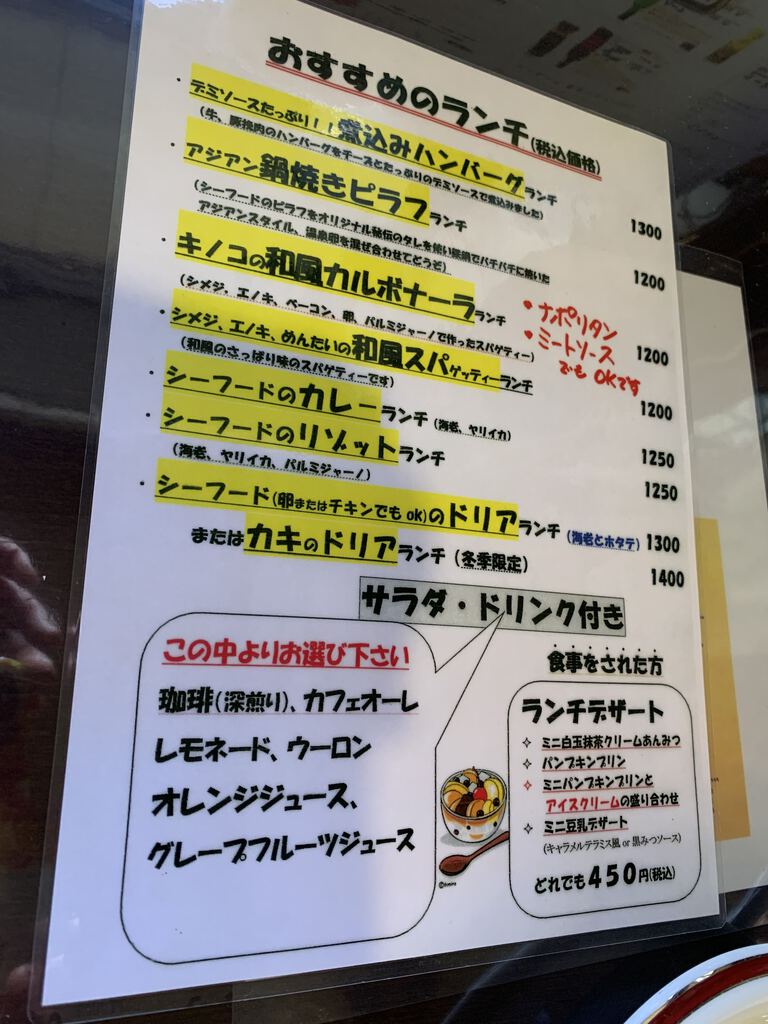 おすすめのランチ(税込価格)
・デミソースたっぷり！煮込みハンバーグランチ 1300
(牛、豚挽肉のハンバーグをチーズとたっぷりのデミソースで煮込みました)
・アジアン鍋焼きピラフランチ 1200
(シーフードのピラフをオリジナル秘伝のタレを使い鉄鍋でパチパチに焼いた
アジアンスタイル、温泉卵を混ぜ合わせてどうぞ)
・キノコの和風カルボナーラランチ 1200
(シメジ、エノキ、ベーコン、卵、パルミジャーノで作ったスパゲティー)
・ナポリタン
・ミートソース
でも OKです
・シメジ、エノキ、めんたいの和風スパゲッティーランチ 1200
(和風のさっぱり味のスパゲティーです)
・シーフードのカレーランチ (海老、ヤリイカ) 1250
・シーフードのリゾットランチ 1250
(海老、ヤリイカ、パルミジャーノ)
・シーフード(卵またはチキンでも ok)のドリアランチ (海老とホタテ) 1300
またはカキのドリアランチ (冬季限定) 1400
サラダ・ドリンク付き
この中よりお選び下さい
珈琲(深煎り)、カフェオーレ
レモネード、ウーロン
オレンジジュース、
グレープフルーツジュース
食事をされた方
ランチデザート
✧ ミニ白玉抹茶クリームあんみつ
✧ パンプキンプリン
✧ ミニパンプキンプリンと
アイスクリームの盛り合わせ
✧ ミニ豆乳デザート
(キャラメルテラミス風 or 黒みつソース)
どれでも450円(税込)